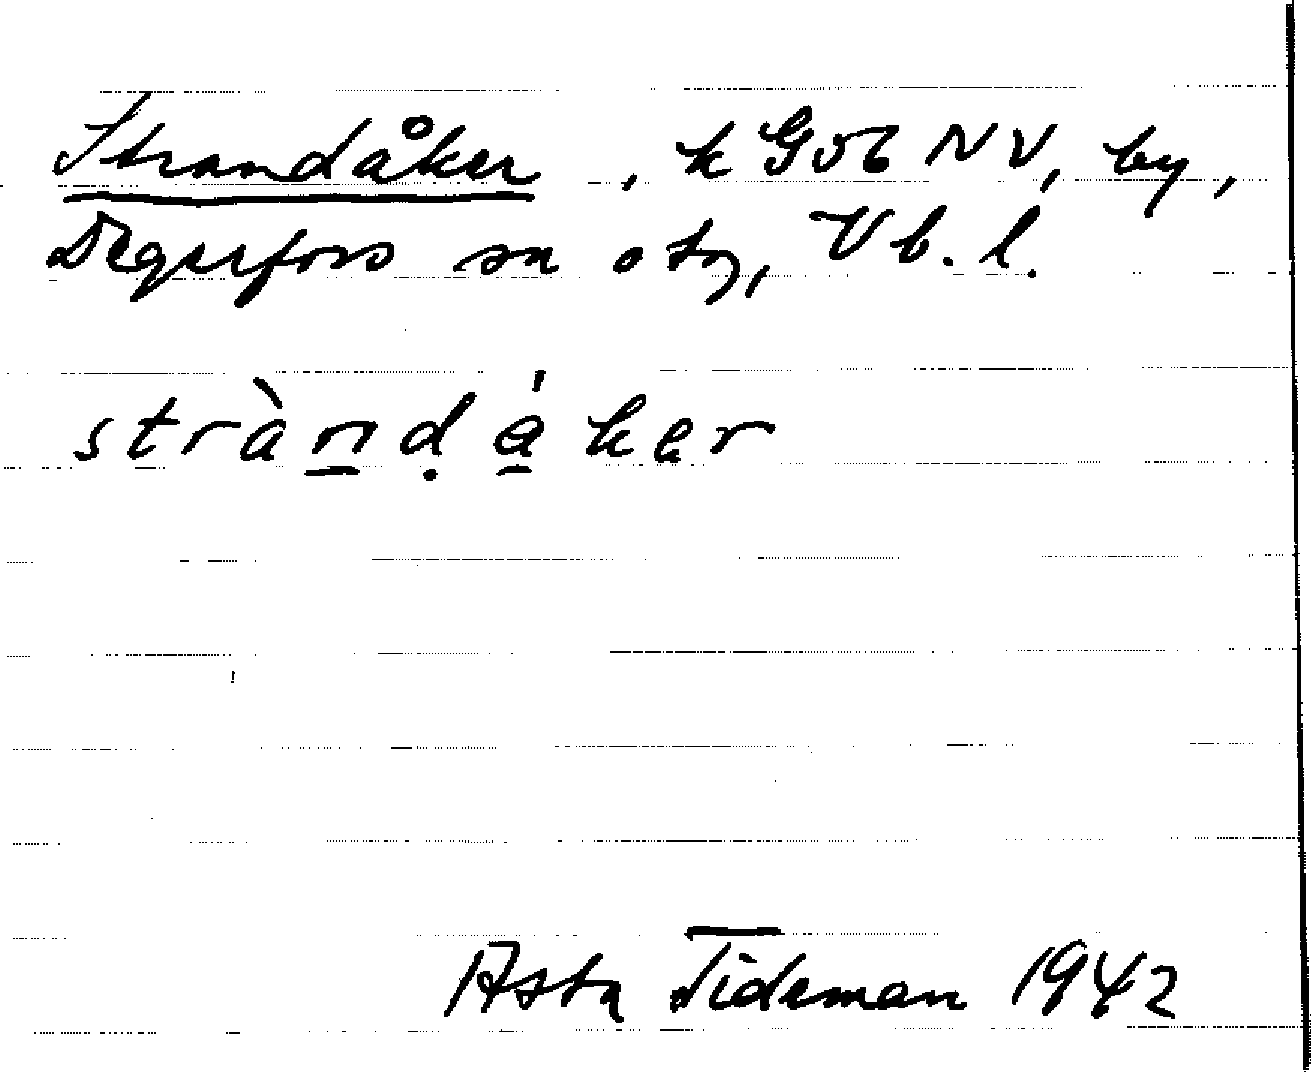 Strandåker, k G56 NV, by,
Degerfors sn o tg, Vb. l.
stràndákər
Asta Tideman 1942